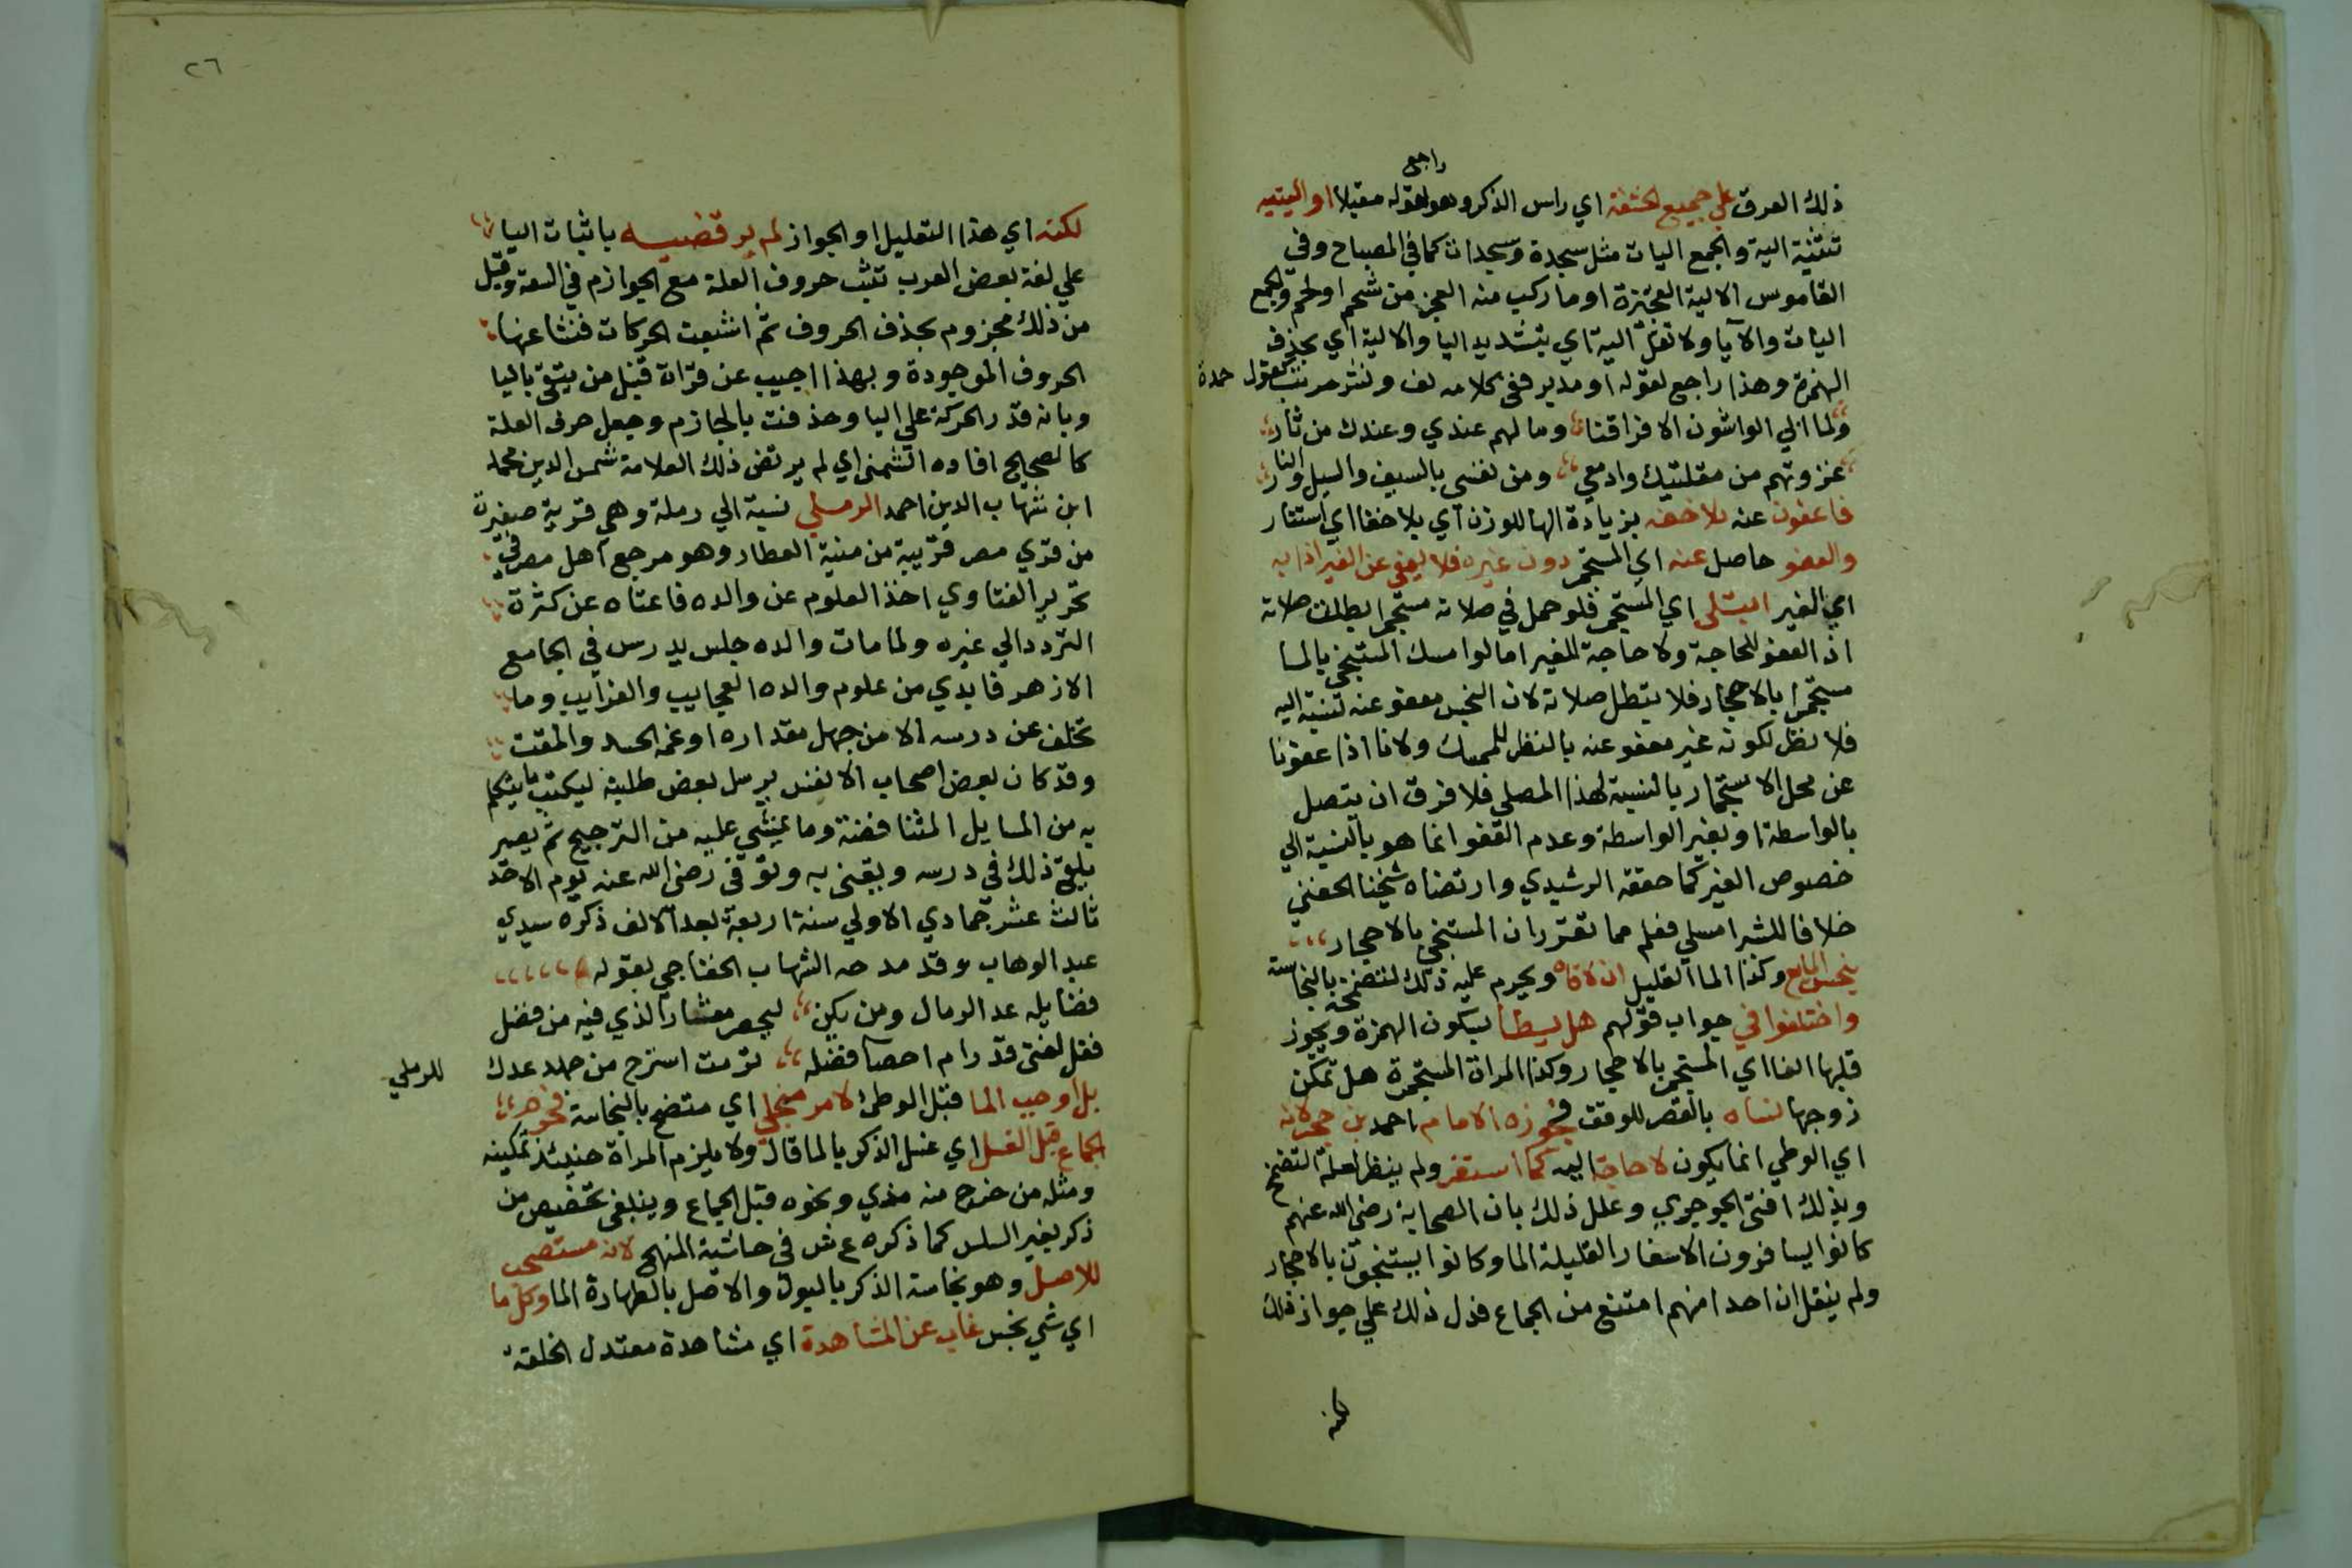 راجع
ذلك العرق علي جميع الحشفة اي راس الذكر وهو لقوله مقبلا او اليتيه
تثنية الية والجمع اليات مثل سجدة وسجدات كما في المصباح وفي
القاموس الالية العجيزة او ما ركب منه العجز من شحم او لحم والجمع
اليات والآيا ولا تقل الية اي بتشديد اليا والالية اي بحذف
الهمزة وهذا راجع لقوله او مدبر ففي كلامه لف ونشر مرتب كقول حمدة
ولما ابي الواشون الا فراقنا وما لهم عندي وعندك من ثار
غزوتهم من مقلتيك وادمعي ومن نفسي بالسيف والسيل والنار
فاعفون عنه بلا خفه بزيادة الها للوزن اي بلا خفا اي استتار
والعفو حاصل عنه اي المستجمر دون غيره فلا يعفي عن الغير اذا به
اي الغير ابتلى اي المستجمر فلو حمل في صلاته مستجمرا بطلت صلاته
اذ العفو للحاجة ولا حاجة للغير اما لو امسك المستنجي بالما
مستجمرا بالاحجار فلا تبطل صلاته لان النجس معفو عنه بنسبة اليه
فلا نظر لكونه غير معفو عنه بالنظر للممسك ولانا اذا عفونا
عن محل الاستجمار بالنسبة لهذا المصلي فلا فرق ان يتصل
بالواسطة او بغير الواسطة وعدم العفو انما هو بالنسبة الي
خصوص الغير كما حققه الرشيدي وارتضاه شيخنا الحفني
خلافا للشبراملسي فعلم مما تقرر ان المستنجي بالاحجار
ينجس المايع وكذا الما القليل ان لاقاه ويحرم عليه ذلك لتضمخه بالنجاسة
واختلفوا في جواب قولهم هل يسطا بسكون الهمزة ويجوز
قلبها الفا اي المستجمر بالاحجار وكذا المراة المستجمرة هل تمكن
زوجها نساه بالقصر للوقف فجوزه الامام احمد بن حجر لانه
اي الوطي انما يكون لا حاجة اليه كما استقر ولم ينظر لعلة التضمخ
وبذلك افتى الجوجري وعلل ذلك بان الصحابة رضي الله عنهم
كانوا يسافرون الاسفار القليلة الما وكانوا يستنجون بالاحجار
ولم ينقل ان احدا منهم امتنع من الجماع فدل ذلك علي جواز ذلك
لكنه
٢٦
لكنه اي هذا التعليل او الجواز لم يرتضيه باثبات اليا
علي لغة بعض العرب تثبت حروف العلة مع الجوازم في السعة وقيل
من ذلك مجزوم بحذف الحروف ثم اشبعت الحركات فنشا عنها
الحروف الموجودة وبهذا اجيب عن قراة قنبل من يتقي باليا
وبانه قدر الحركة علي اليا وحذفت بالجازم وجعل حرف العلة
كالصحيح افاده الشمني اي لم يرتض ذلك العلامة شمس الدين محمد
ابن شهاب الدين احمد الرملي نسبة الي رملة وهي قرية صغيرة
من قري مصر قريبة من منية العطار وهو مرجع اهل مصر في
تحرير الفتاوي اخذ العلوم عن والده فاغناه عن كثرة
التردد الي غيره ولما مات والده جلس يدرس في الجامع
الازهر فابدي من علوم والده العجايب والغرايب وما
تخلف عن درسه الا من جهل مقداره او غمه الحسد والمقت
وقد كان بعض اصحاب الانفس يرسل بعض طلبته ليكتب ما يتكلم
به من المسايل المتناقضة وما يمشي عليه من الترجيح ثم يصير
يلقي ذلك في درسه ويفتي به وتوفي رضي الله عنه يوم الاحد
ثالث عشر جمادي الاولي سنة اربعة بعد الالف ذكره سيدي
عبد الوهاب وقد مدحه الشهاب الخفاجي بقوله
فضايله عد الرمال ومن يكن ليحصر معشار الذي فيه من فضل
فقل لغبي قد رام احصا فضله تربت استرح من جهد عدك للرملي
بل اوجب الما قبل الوطئ لامر منجلي اي متضح بالنجاسة فحرم
الجماع قبل الغسل اي غسل الذكر بالما قال ولا يلزم المراة حينئذ تمكينه
ومثله من خرج منه مذي ونحوه قبل الجماع وينبغي تخصيص من
ذكر بغير السلس كما ذكره ع ش في حاشية المنهج لانه مستصحب
للاصل وهو نجاسة الذكر بالبول والاصل بالطهارة الما وكل ما
اي شي نجس غاب عن المشاهدة اي مشاهدة معتدل الخلقة